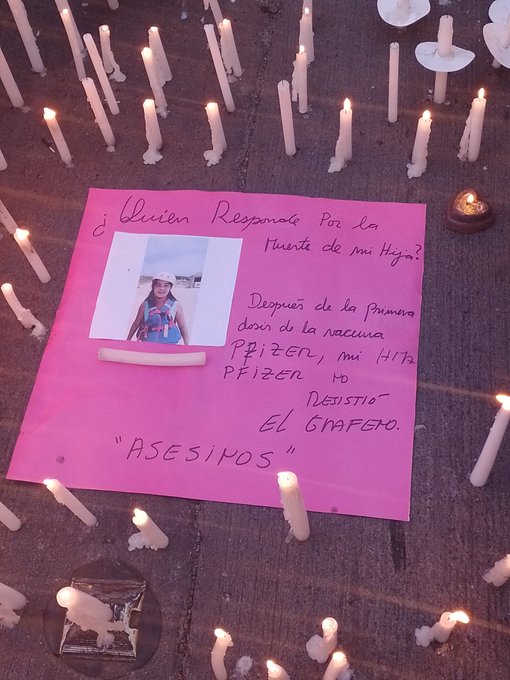 ¿Quien Responde Por la
Muerte de mi Hija?
Después de la primera
dosis de la vacuna
PFIZER, mi HIJA
PFIZER NO
RESISTIÓ
EL GRAFENO.
"ASESINOS"